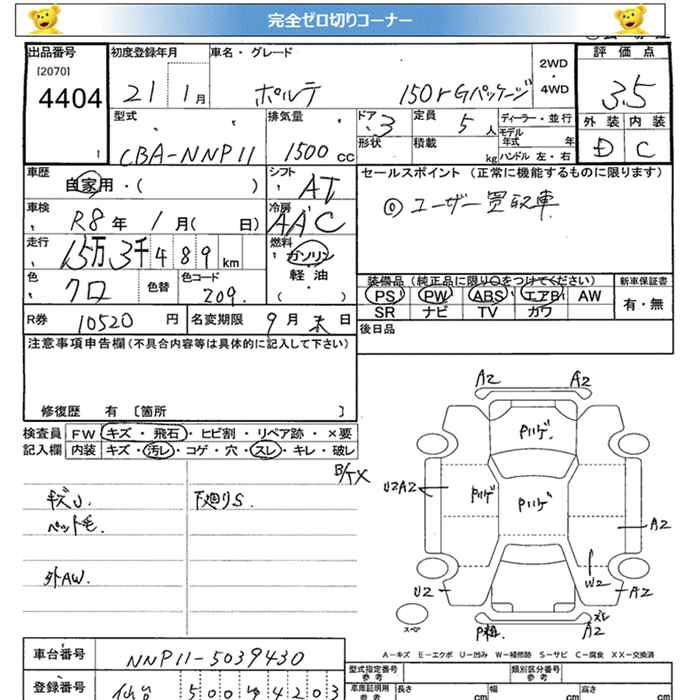 完全ゼロ切りコーナー
出品番号 初度登録年月 車名・グレード 評価点
[2070] 2WD ・ 4WD
4404 21 1月 ポルテ 150r Gパッケージ 3.5
型式 排気量 ドア 定員 ディーラー・並行 外装 内装
CBA-NNP11 1500cc 3 5人 モデル年式 年 D C
形状 積載 kg ハンドル 左・右
車歴 シフト セールスポイント(正常に機能するものに限ります)
自家用・( ) AT ◎ユーザー買取車
車検 冷房
R8年 1月( 日) AAC
走行 燃料
15万3千489km ガソリン
色 色替 色コード 軽油
クロ 209. ( ・ )
装備品(純正品に限り○をつけてください) 新車保証書
PS PW ABS エアB AW 有・無
SR ナビ TV カワ
R券 10520円 名変期限 9月末日 後日品
注意事項申告欄(不具合内容等は具体的に記入して下さい)
修復歴 有 〔箇所 〕
検査員 FW キズ・飛石・ヒビ割・リペア跡・×要
記入欄 内装 キズ・汚レ・コゲ・穴・スレ・キレ・破レ
キズU. 下廻りS.
ペット毛
外AW.
A2 A2
Pハゲ
U2A2 Pハゲ Pハゲ A2
U2 W2 A2
スペア A2
A-キズ E-エクボ U-凹み W-補修跡 S-サビ C-腐食 XX-交換済
車台番号 NNP11-5039430 型式指定番号 参考 類別区分番号 参考
登録番号 仙台 500 4203 車庫証明用 参考 長さ cm 幅 cm 高さ cm